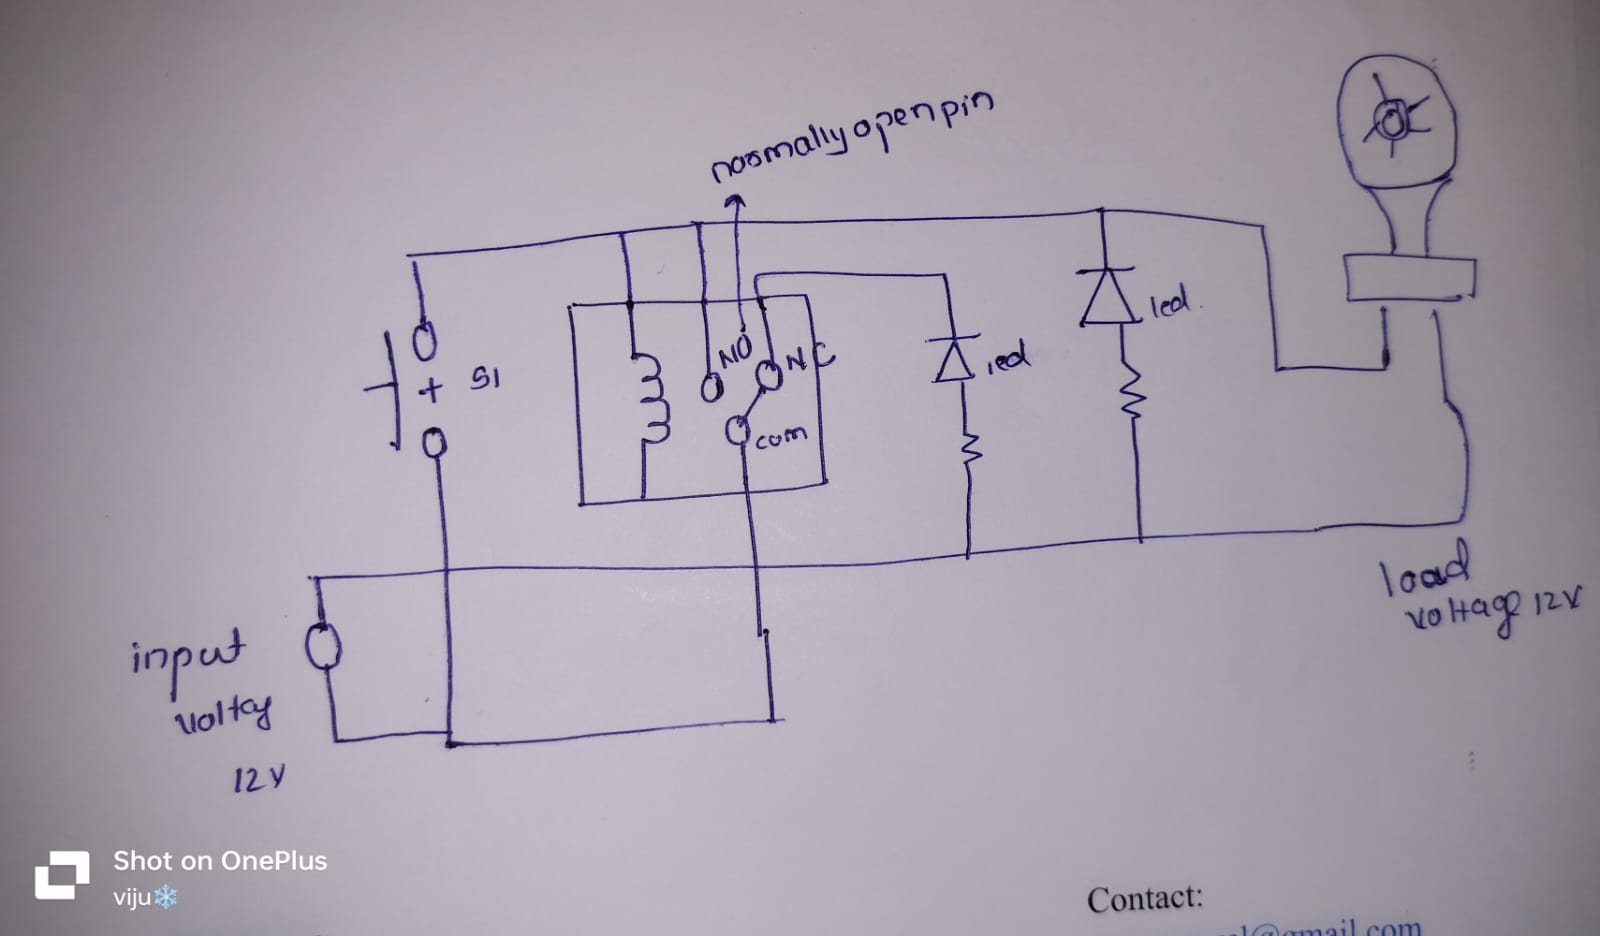 noomally open pin
led.
NO
NC
led
S1
+
com
input
voltay
12V
load
voltage 12V
Shot on OnePlus
viju❄️
Contact:
@gmail.com